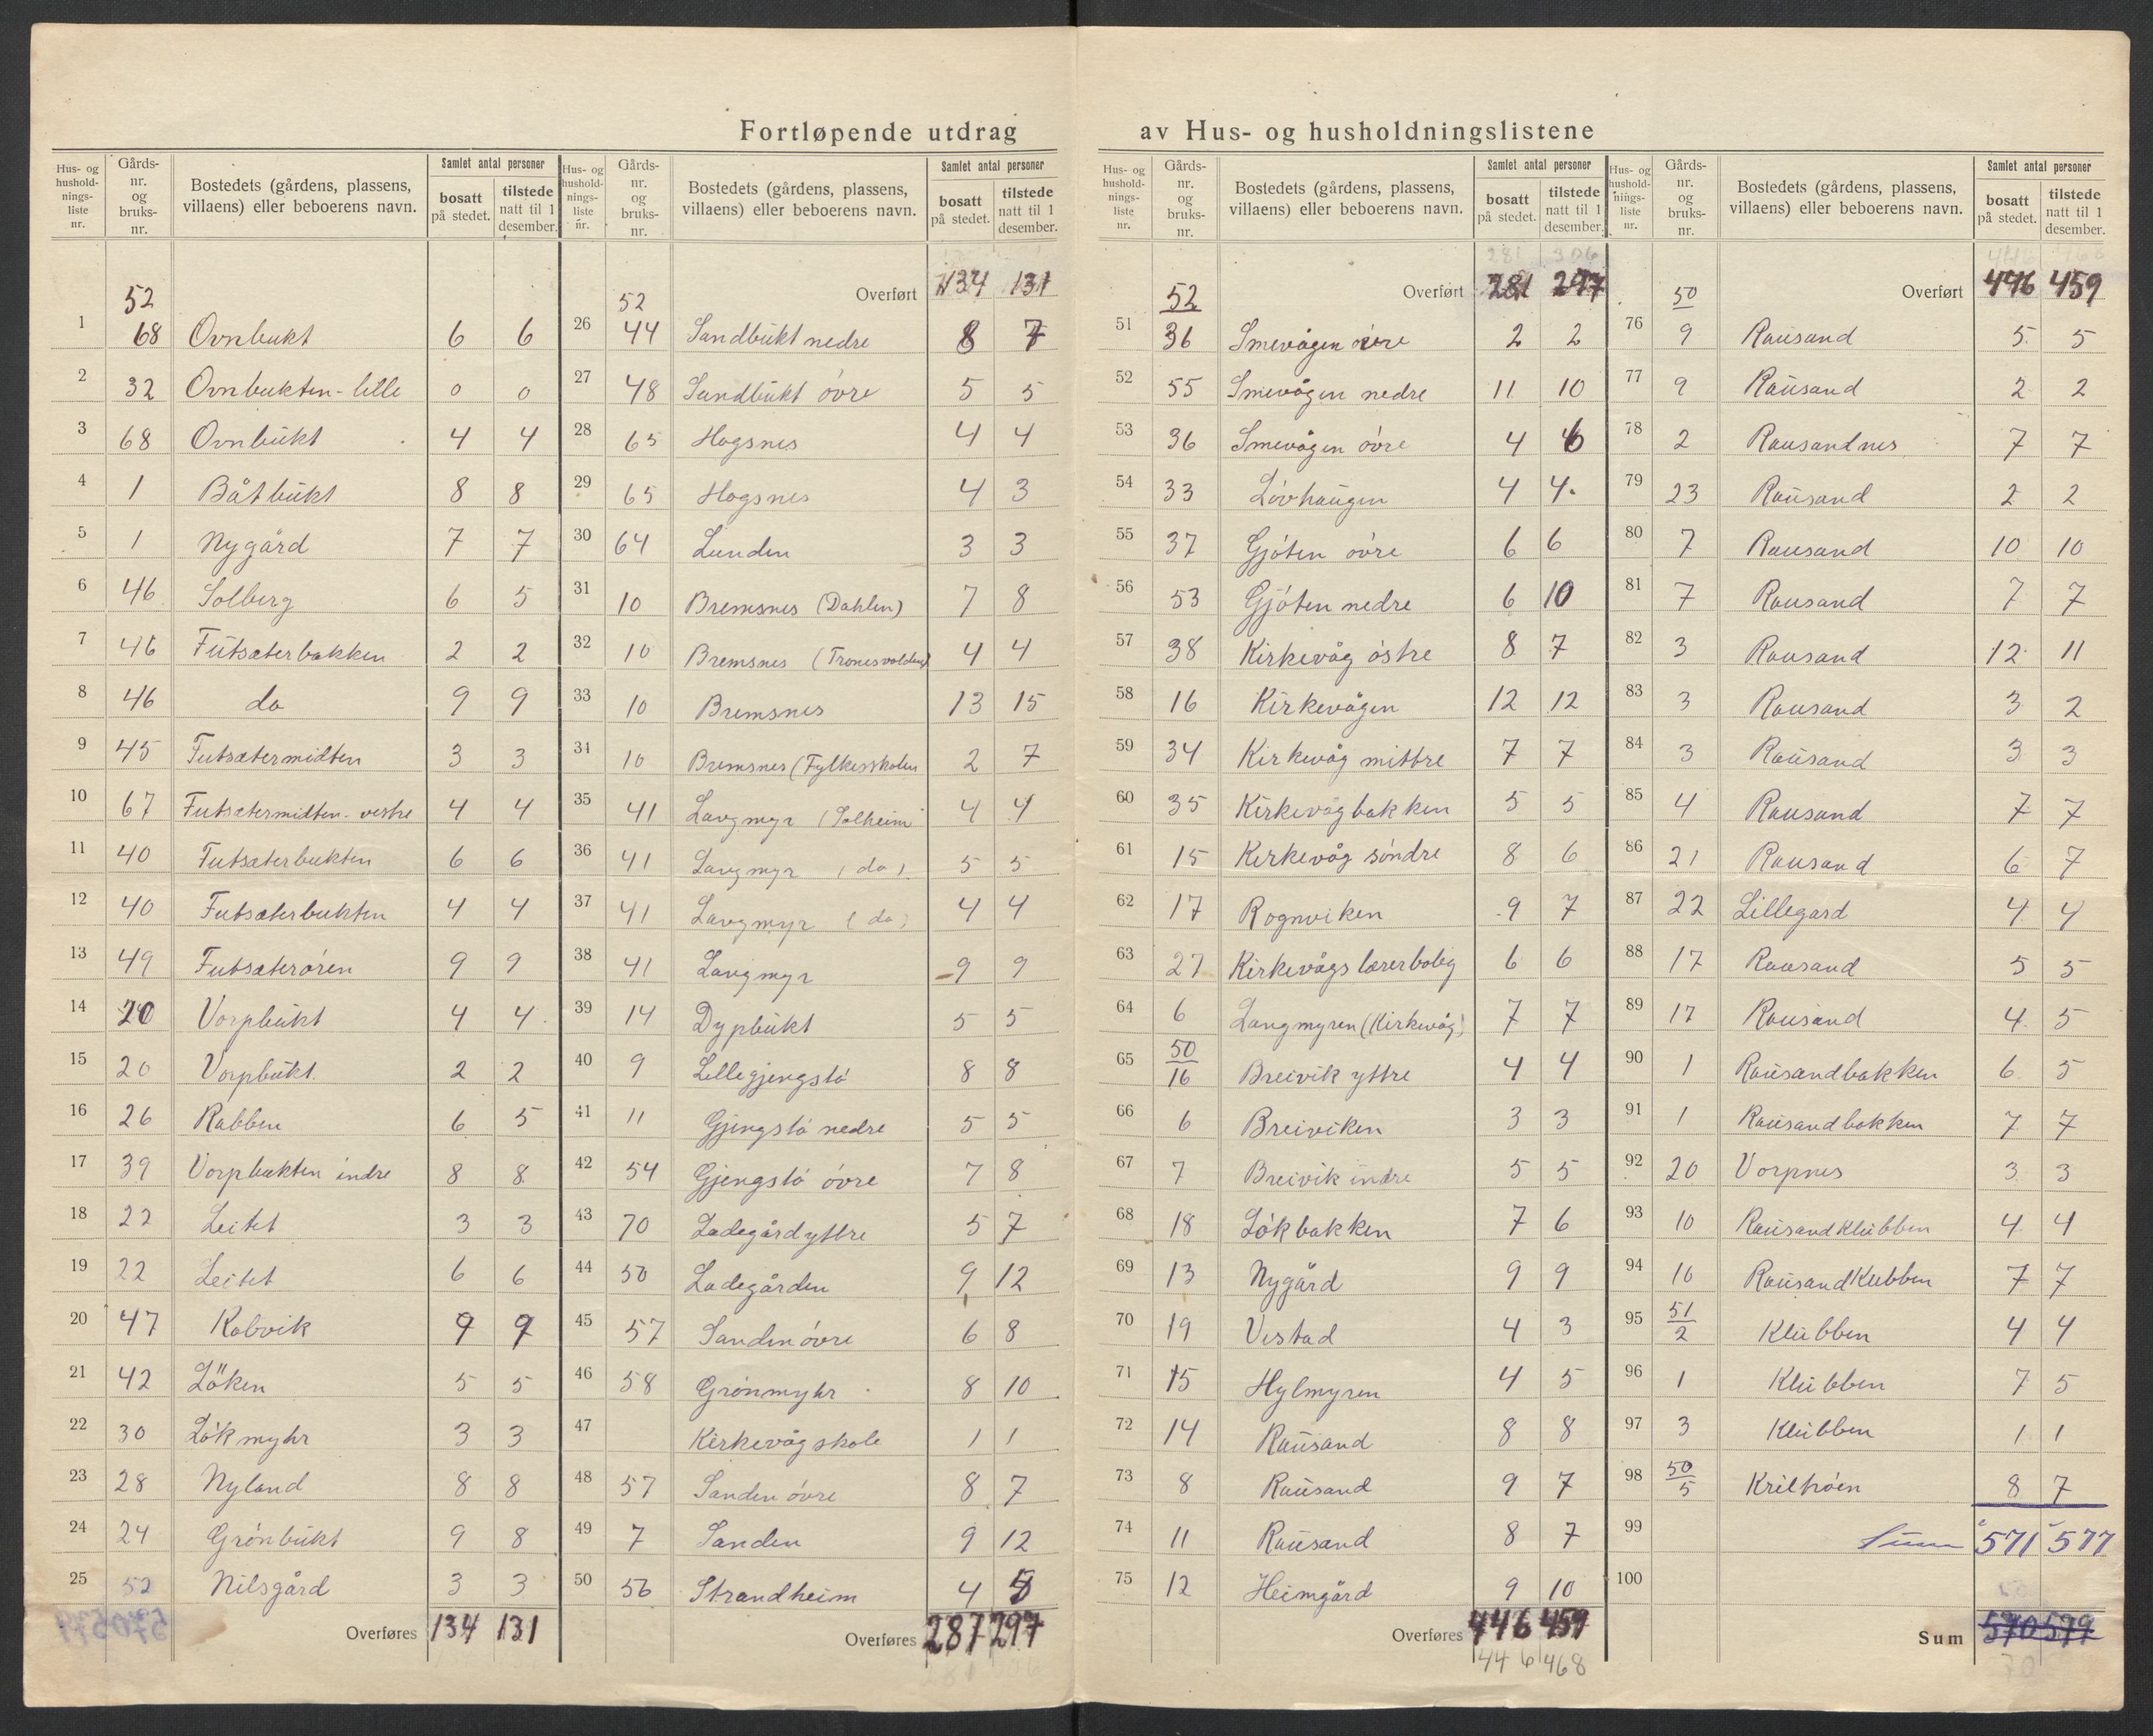 Fortløpende utdrag av Hus- og husholdningslistene
Hus- og husholdningsliste nr. | Gårds-nr. og bruks-nr. | Bostedets (gårdens, plassens, villaens) eller beboerens navn. | Samlet antal personer bosatt på stedet. | tilstede natt til 1 desember.
52
1 68 Ovnbukt 6 6
2 32 Ovnbukten-lille 0 0
3 68 Ovnbukt 4 4
4 1 Båtbukt 8 8
5 1 Nygård 7 7
6 46 Solberg 6 5
7 46 Futsæterbakken 2 2
8 46 do 9 9
9 45 Futsætermidten 3 3
10 67 Futsætermidten-vestre 4 4
11 40 Futsæterbukten 6 6
12 40 Futsæterbukten 4 4
13 49 Futsæterøren 9 9
14 20 Vorpbukt 4 4
15 20 Vorpbukt 2 2
16 26 Rabben 6 5
17 39 Vorpbukten indre 8 8
18 22 Leitet 3 3
19 22 Leitet 6 6
20 47 Kobvik 9 9
21 42 Löken 5 5
22 30 Lökmyhr 3 3
23 28 Nyland 8 8
24 24 Grönbukt 9 8
25 52 Nilsgård 3 3
Overføres 134 131
Hus- og husholdningsliste nr. | Gårds-nr. og bruks-nr. | Bostedets (gårdens, plassens, villaens) eller beboerens navn. | Samlet antal personer bosatt på stedet. | tilstede natt til 1 desember.
Overført 134 131
52
26 44 Sandbukt nedre 8 7
27 48 Sandbukt övre 5 5
28 65 Hogsnes 4 4
29 65 Hogsnes 4 3
30 64 Lunden 3 3
31 10 Bremsnes (Dahlen) 7 8
32 10 Bremsnes (Tronesvolden) 4 4
33 10 Bremsnes 13 15
34 10 Bremsnes (Fylkesskolen 2 7
35 41 Langmyr (Solheim 4 4
36 41 Langmyr (do) 5 5
37 41 Langmyr (do) 4 4
38 41 Langmyr 9 9
39 14 Dypbukt 5 5
40 9 Lillegjengstö 8 8
41 11 Gjengstö nedre 5 5
42 54 Gjengstö övre 7 8
43 70 Ladegård yttre 5 7
44 50 Ladegården 9 12
45 57 Sanden övre 6 8
46 58 Grönmyhr 8 10
47 Kirkevåg skole 1 1
48 57 Sanden övre 8 7
49 7 Sanden 9 12
50 56 Strandheim 4 8
Overføres 287 297
Hus- og husholdningsliste nr. | Gårds-nr. og bruks-nr. | Bostedets (gårdens, plassens, villaens) eller beboerens navn. | Samlet antal personer bosatt på stedet. | tilstede natt til 1 desember.
281 306
Overført 281 297
52
51 36 Smevågen övre 2 2
52 55 Smevågen nedre 11 10
53 36 Smevågen övre 4 6
54 33 Lövhaugen 4 4
55 37 Gjöten övre 6 6
56 53 Gjöten nedre 6 10
57 38 Kirkevåg östre 8 7
58 16 Kirkevågen 12 12
59 34 Kirkevåg mittre 7 7
60 35 Kirkevåg bakken 5 5
61 15 Kirkevåg söndre 8 6
62 17 Rognviken 9 7
63 27 Kirkevågs lærerbolig 6 6
64 6 Langmyren (Kirkevåg) 7 7
65 50/16 Breivik yttre 4 4
66 6 Breiviken 3 3
67 7 Breivik indre 5 5
68 18 Lökbakken 7 6
69 13 Nygård 9 9
70 19 Vestad 4 3
71 15 Hylmyren 4 5
72 14 Rausand 8 8
73 8 Rausand 9 7
74 11 Rausand 8 7
75 12 Heimgård 9 10
Overføres 446 459
446 468
Hus- og husholdningsliste nr. | Gårds-nr. og bruks-nr. | Bostedets (gårdens, plassens, villaens) eller beboerens navn. | Samlet antal personer bosatt på stedet. | tilstede natt til 1 desember.
Overført 446 459
50
76 9 Rausand 5 5
77 9 Rausand 2 2
78 2 Rausandnes 7 7
79 23 Rausand 2 2
80 7 Rausand 10 10
81 7 Rausand 7 7
82 3 Rausand 12 11
83 3 Rausand 3 2
84 3 Rausand 3 3
85 4 Rausand 7 7
86 21 Rausand 6 7
87 22 Lillegard 4 4
88 17 Rausand 5 5
89 17 Rausand 4 5
90 1 Rausandbakken 6 5
91 1 Rausandbakken 7 7
92 20 Vorpnes 3 3
93 10 Rausandklubben 4 4
94 10 RausandKlubben 7 7
95 51/2 Klubben 4 4
96 1 Klubben 7 5
97 3 Klubben 1 1
98 50/5 Krilhöen 8 7
99 Sum 571 577
100
Sum 570 579